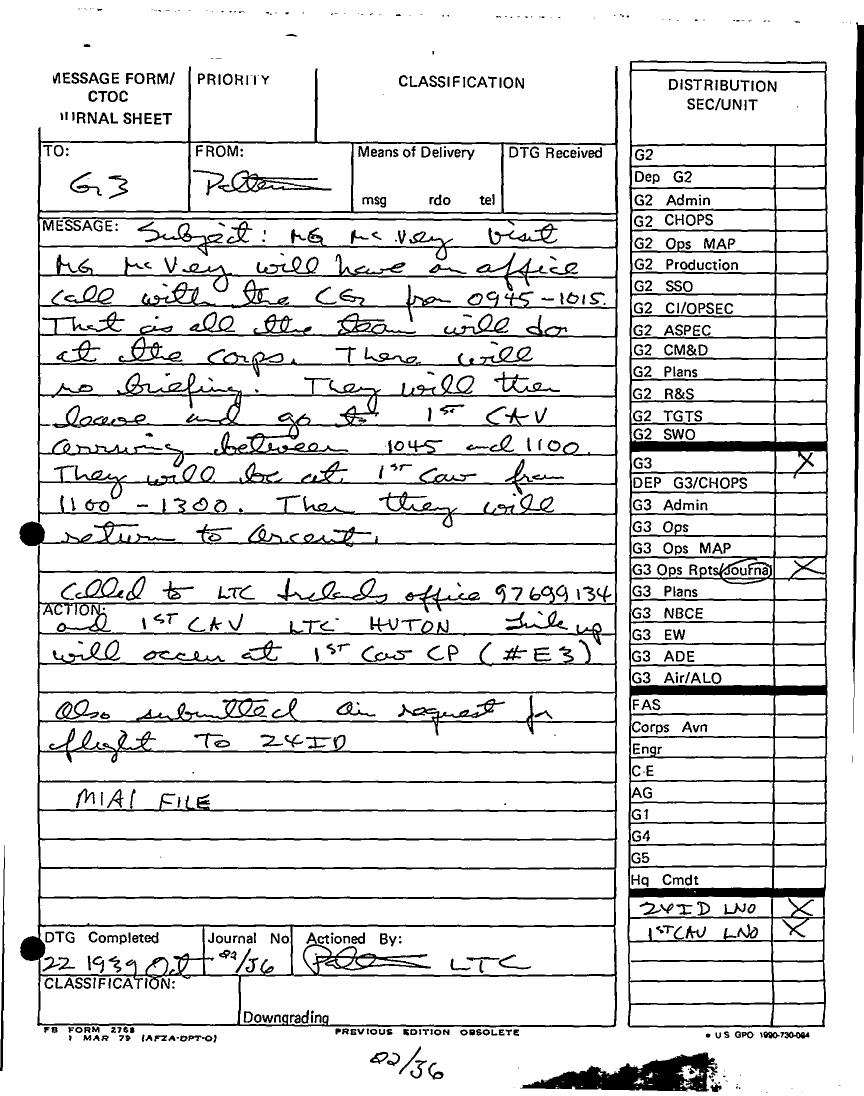 MESSAGE FORM/ PRIORITY CLASSIFICATION
CTOC
JOURNAL SHEET
TO: FROM: Means of Delivery DTG Received
G3
msg rdo tel
MESSAGE: Subject: MG McVey visit
MG McVey will have an office
call with the CG from 0945-1015.
That is all the team will do
at the corps. There will
no briefing. They will then
leave and go to 1ST CAV
arriving between 1045 and 1100.
They will be at 1ST Cav from
1100 - 1300. Then they will
return to Arcent.
Called to LTC Irelands office 97699134
ACTION:
and 1ST CAV LTC HUTON Link up
will occur at 1ST Cav CP (#E3)
Also submitted air request for
flight To 24ID
MIAI FILE
DTG Completed Journal No Actioned By:
22 1939 Oct 02/36 LTC
CLASSIFICATION:
Downgrading
FB FORM 2768
1 MAR 79 (AFZA-DPT-O)
PREVIOUS EDITION OBSOLETE
02/36
DISTRIBUTION
SEC/UNIT
G2
Dep G2
G2 Admin
G2 CHOPS
G2 Ops MAP
G2 Production
G2 SSO
G2 CI/OPSEC
G2 ASPEC
G2 CM&D
G2 Plans
G2 R&S
G2 TGTS
G2 SWO
G3 X
DEP G3/CHOPS
G3 Admin
G3 Ops
G3 Ops MAP
G3 Ops Rpts/Journal X
G3 Plans
G3 NBCE
G3 EW
G3 ADE
G3 Air/ALO
FAS
Corps Avn
Engr
C-E
AG
G1
G4
G5
Hq Cmdt
24ID LNO X
1ST CAV LNO X
US GPO 1990-730-084